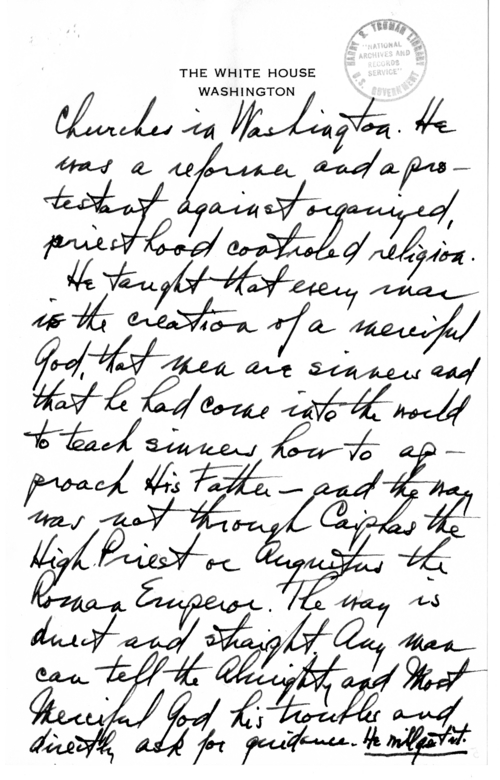 HARRY S. TRUMAN LIBRARY
"NATIONAL
ARCHIVES AND
RECORDS
SERVICE"
U.S. GOVERNMENT
THE WHITE HOUSE
WASHINGTON
Churches in Washington. He
was a reformer and a pro-
testant against organized,
priesthood controled religion.
He taught that every man
is the creation of a merciful
God, that men are sinners and
that he had come into the world
to teach sinners how to ap-
proach His Father – and the way
was not through Caiphas the
High Priest or Augustus the
Roman Emperor. The way is
direct and straight. Any man
can tell the Almighty and Most
Merciful God his troubles and
directly ask for guidance. He will get it.